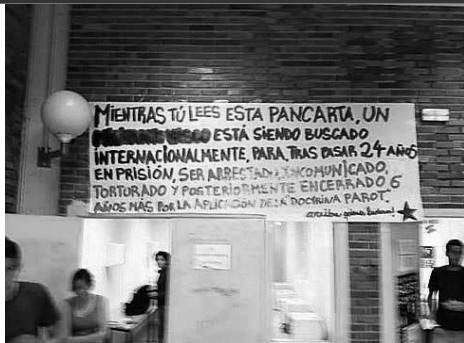 MIENTRAS TÚ LEES ESTA PANCARTA, UN
ESTÁ SIENDO BUSCADO
INTERNACIONALMENTE, PARA, TRAS PASAR 24 AÑOS
EN PRISIÓN, SER ARRESTADO, INCOMUNICADO,
TORTURADO Y POSTERIORMENTE ENCERRADO 6
AÑOS MÁS POR LA APLICACIÓN DE LA DOCTRINA PAROT.